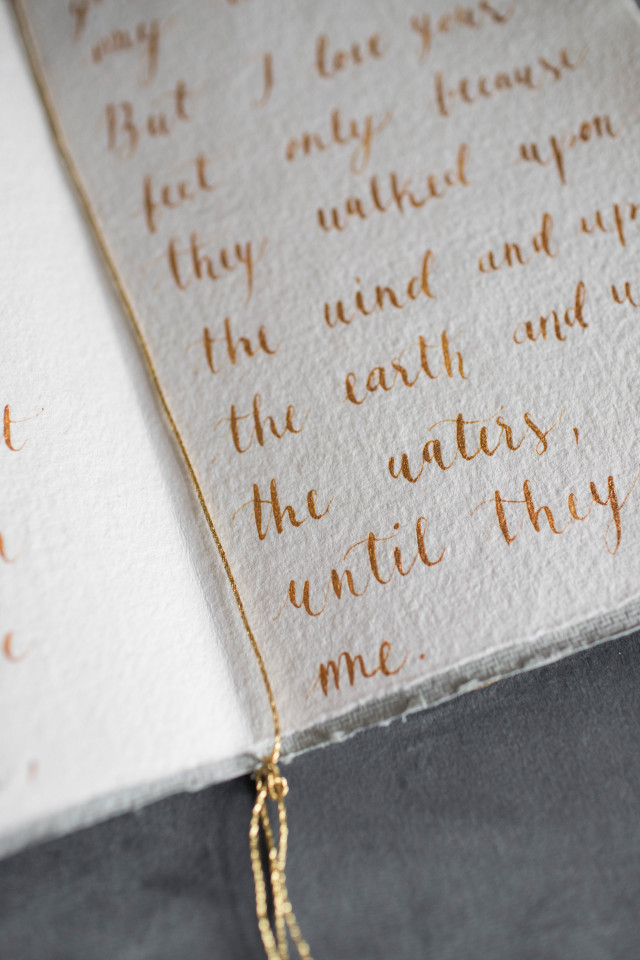 my
But I love your
feet only because
they walked upon
the wind and upo
the earth and u
the waters,
until they
me.